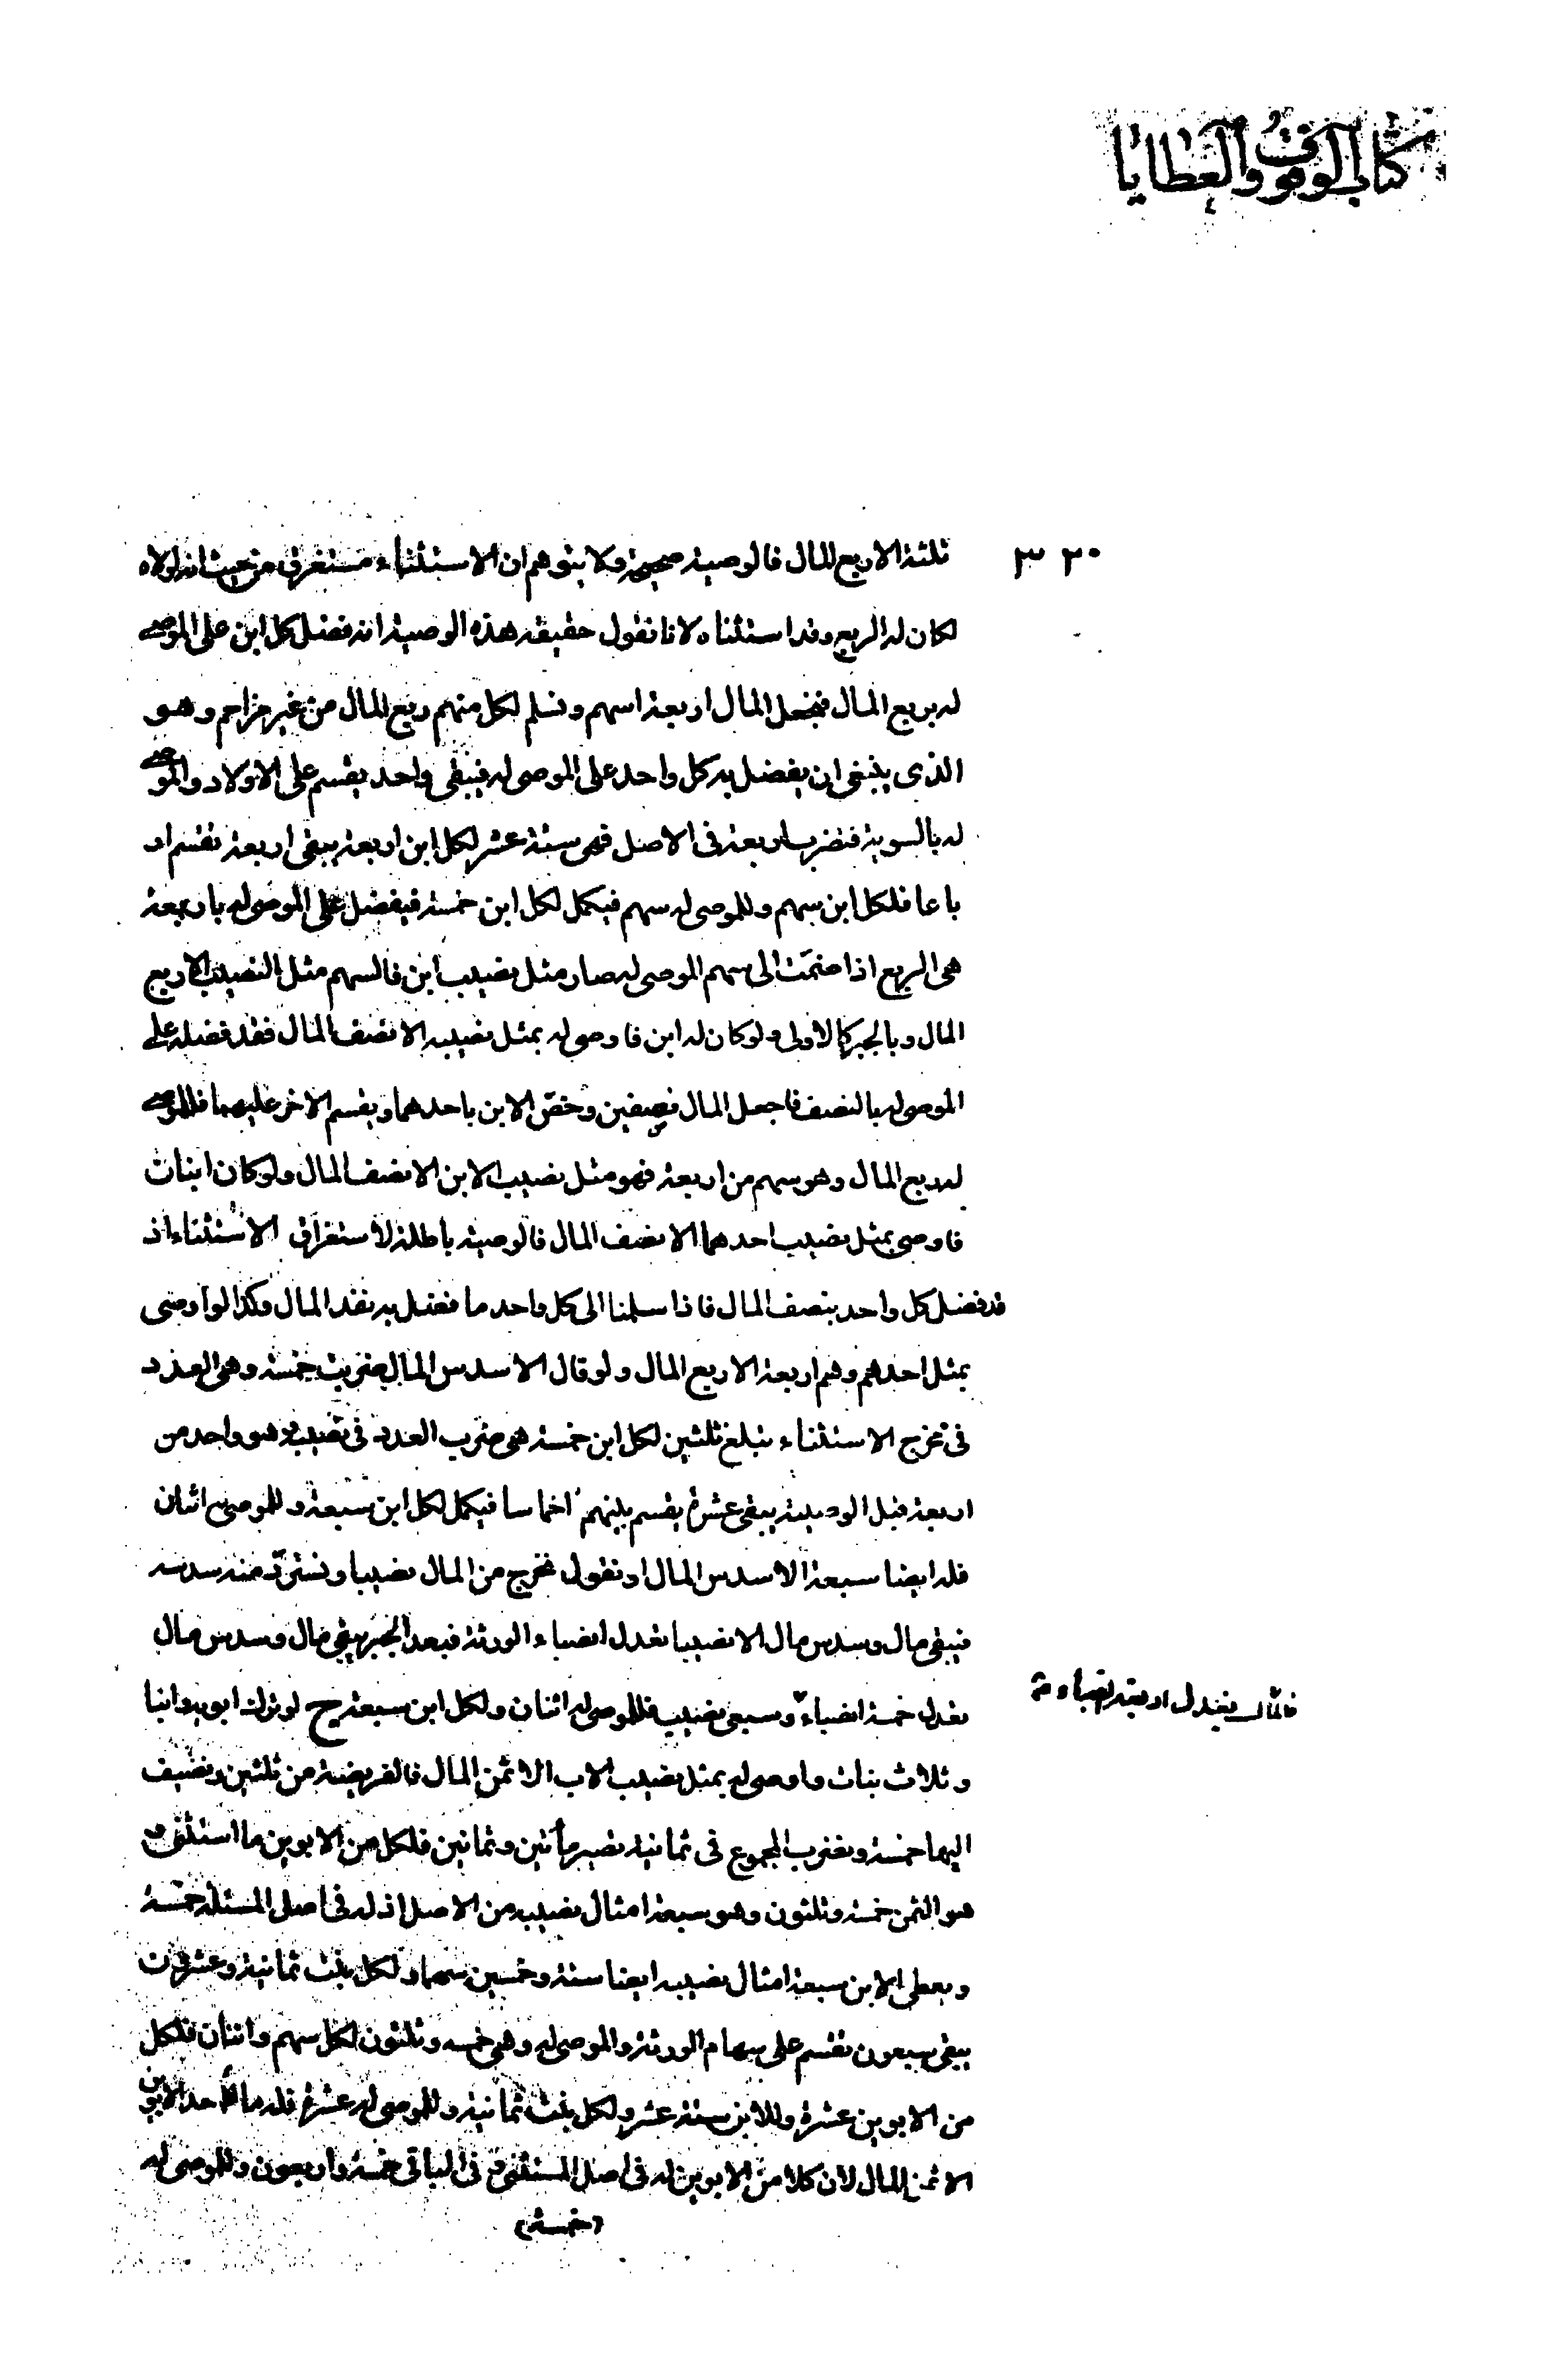 كتاب الوقوف والعطايا
٣٣٠
ثلثة الا ربع المال فالوصية صحيحة ولا يتوهم ان الاستثناء مستغرق من حيث انه لولاه
لكان له الربع وقد استثناه لانا نقول حقيقة هذه الوصية انه فضل كل ابن على الموصى
له بربع المال فنجعل المال اربعة اسهم ونسلم لكل منهم ربع المال من غير مزاحم وهو
الذى ينبغى ان يفضل به كل واحد على الموصى له فيبقى واحد يقسم على الاولاد والموصى
له بالسوية فنضرب اربعة فى الاصل فهى ستة عشر لكل ابن اربعة يبقى اربعة تقسم ار
باعا فلكل ابن سهم وللموصى له سهم فيكمل لكل ابن خمسة فيفضل على الموصى له باربعة
هى الربع اذا ضمت الى سهم الموصى له صار مثل نصيب ابن فالسهم مثل النصيب الا ربع
المال وبالجبر كالاولى ولو كان له ابن فاوصى له بمثل نصيبه الا نصف المال فقد فضله على
الموصى له بالنصف فاجعل المال نصفين وخص الابن باحدهما ويقسم الاخر عليهما فللموصى
له ربع المال وهو سهم من اربعة فهو مثل نصيب الابن الا نصف المال ولو كان ابنان
فاوصى بمثل نصيب احدهما الا نصف المال فالوصية باطلة لاستغراق الاستثناء اذ
قد فضل كل واحد بنصف المال فاذا سلمنا الى كل واحد ما فضل به نفذ المال وكذا لو اوصى
بمثل احدهم وهم اربعة الا ربع المال ولو قال الا سدس المال ضربت خمسة وهى العدد
فى مخرج الاستثناء تبلغ ثلثين لكل ابن خمسة هى ضرب العدد فى نصيبه وهو واحد من
اربعة قبل الوصية يبقى عشرة يقسم بينهم اخماسا فيكمل لكل ابن سبعة وللموصى له اثنان
فله ايضا سبعة الا سدس المال او نقول نخرج من المال نصيبا ونسترد منه سدسه
فيبقى مال وسدس مال الا نصيبا تعدل انصباء الورثة فبعد الجبر يبقى مال وسدس مال
فالمال يعدل اربعة انصباء
تعدل خمسة انصباء وسبعى نصيب فللموصى له اثنان ولكل ابن سبعة ح لو ترك ابويه وابنا
وثلاث بنات واوصى له بمثل نصيب الاب الا ثمن المال فالفريضة من ثلثين ونضيف
اليها خمسة ونضرب المجموع فى ثمانية تصير مأتين وثمانين فلكل من الابوين ما استثنى و
هو الثمن خمسة وثلثون وهو سبعة امثال نصيبه من الاصل اذ له فى اصل المسئلة خمسة
ويعطى الابن سبعة امثال نصيبه ايضا ستة وخمسين سهما ولكل بنت ثمانية وعشرون
يبقى سبعون تقسم على سهام الورثة والموصى له وهى خمسه وثلثون لكل سهم واثنان فلكل
من الابوين عشرة وللابن ستة عشر ولكل بنت ثمانية وللموصى له عشرة فله ما لاحد الابوين
الا ثمن المال لان كلا من الابوين له فى اصل المستثنى و فى الباقى خمسة واربعون وللموصى له
(خمسة)